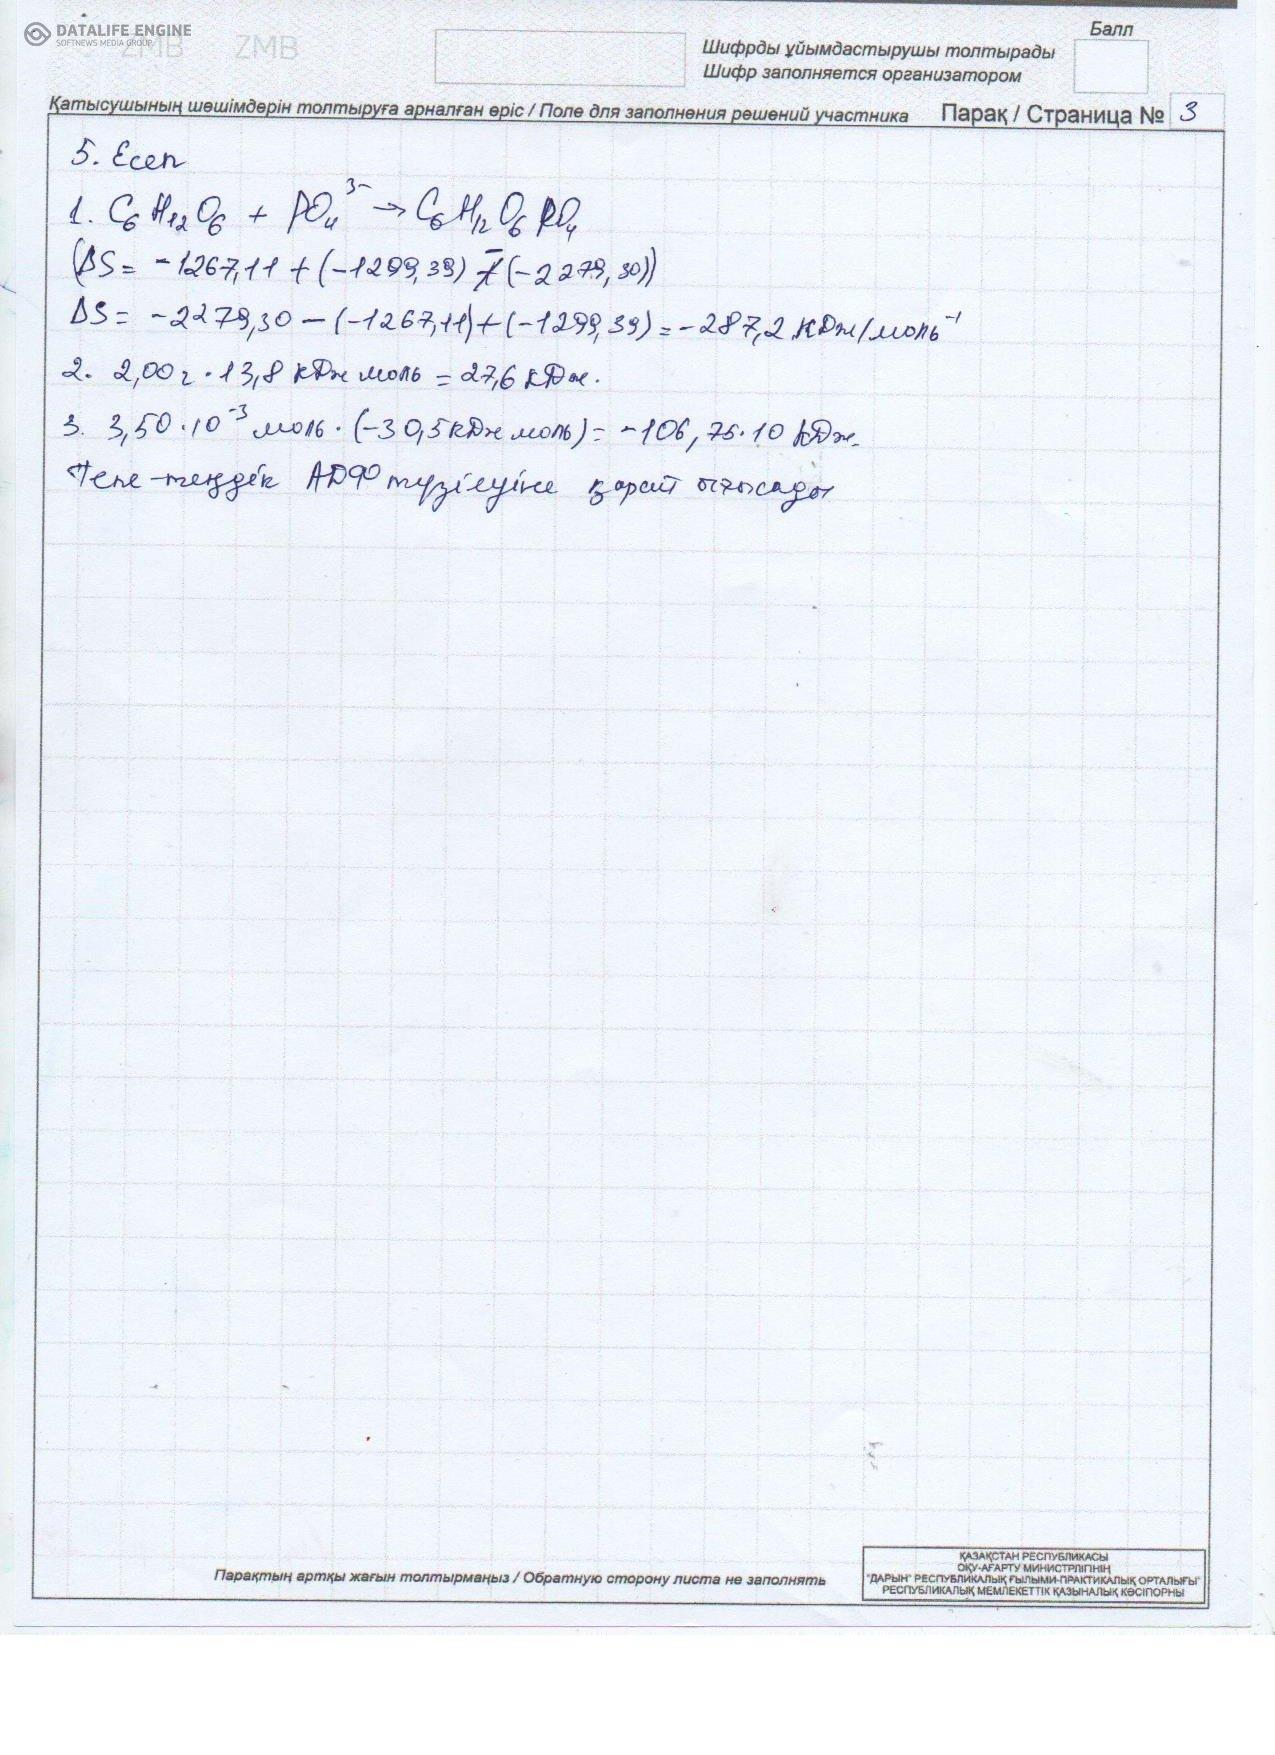 DATALIFE ENGINE
SOFTNEWS MEDIA GROUP
ZMB ZMB
Балл
Шифрды ұйымдастырушы толтырады
Шифр заполняется организатором
Қатысушының шешімдерін толтыруға арналған өріс / Поле для заполнения решений участника
Парақ / Страница № 3
5. Есеп
1. C₆H₁₂O₆ + PO₄³⁻ → C₆H₁₂O₆PO₄
(ΔS = -1267,11 + (-1299,39) - (-2279,30))
ΔS = -2279,30 - (-1267,11) + (-1299,39) = -287,2 кДж/моль⁻¹
2. 2,00 г · 13,8 кДж моль = 27,6 кДж.
3. 3,50 · 10⁻³ моль · (-30,5 кДж моль) = -106,75 · 10 кДж.
Тепе-теңдік АДФ түзілуіне қарай ығысады
Парақтың артқы жағын толтырмаңыз / Обратную сторону листа не заполнять
ҚАЗАҚСТАН РЕСПУБЛИКАСЫ
ОҚУ-АҒАРТУ МИНИСТРЛІГІНІҢ
"ДАРЫН" РЕСПУБЛИКАЛЫҚ ҒЫЛЫМИ-ПРАКТИКАЛЫҚ ОРТАЛЫҒЫ"
РЕСПУБЛИКАЛЫҚ МЕМЛЕКЕТТІК ҚАЗЫНАЛЫҚ КӘСІПОРНЫ